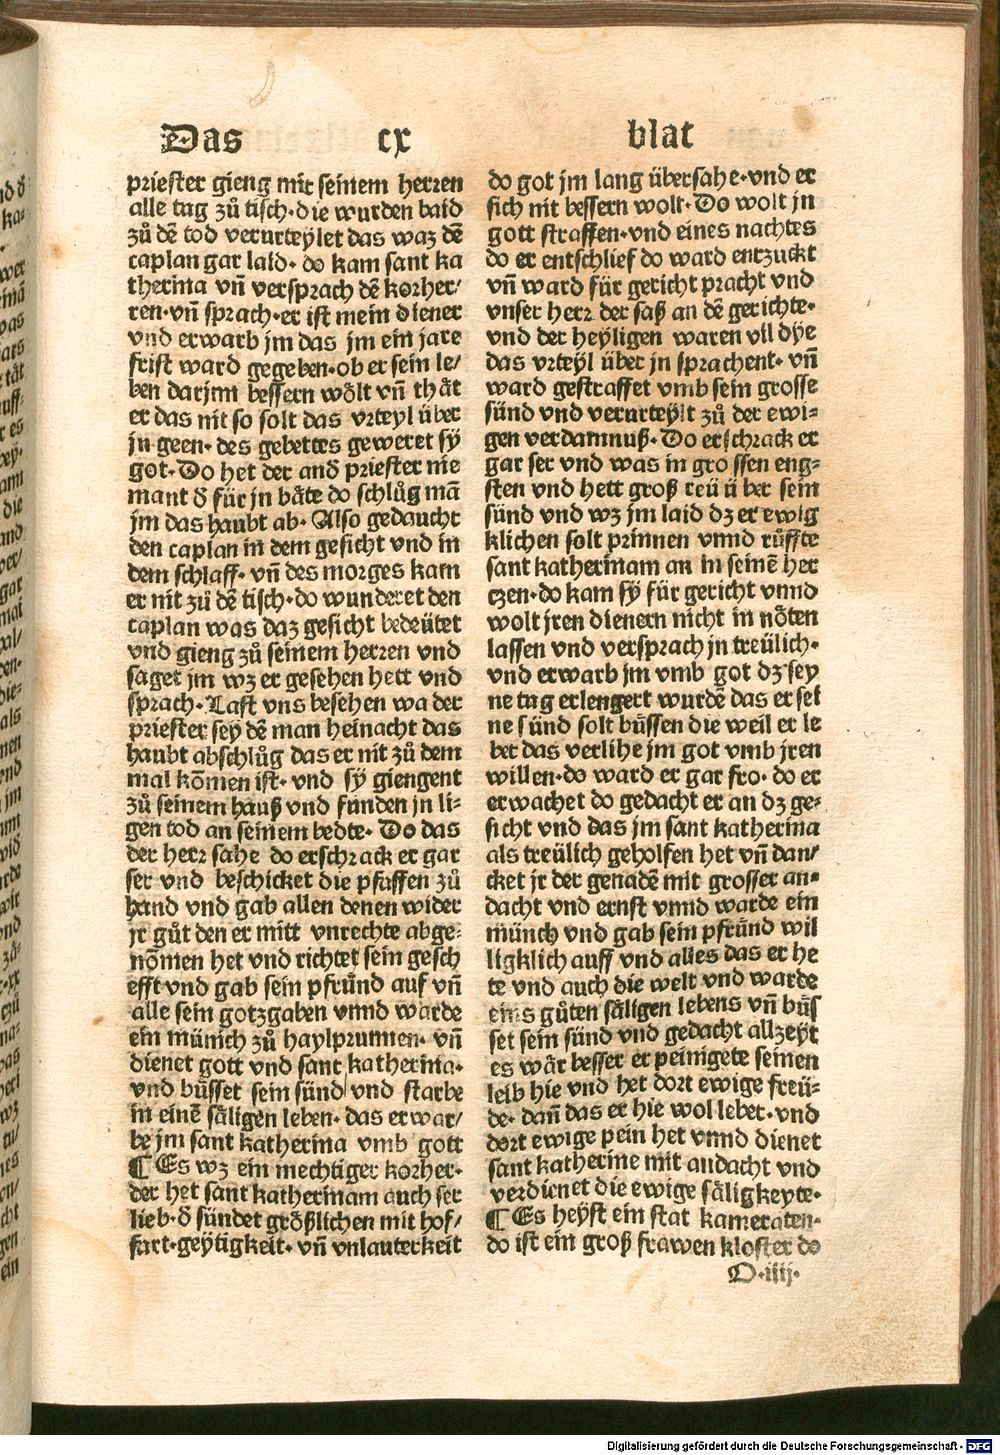 Das cx blat
priester gieng mit seinem herren
alle tag zů tisch·die wurden bald
zů dẽ tod verurteylet das waz dẽ
caplan gar laid· do kam sant ka
therina vñ versprach dẽ korher/
ren·vñ sprach·er ist mein diener
vnd erwarb jm das jm ein jare
frist ward gegeben·ob er sein le/
ben darjnn bessern wőlt vñ thåt
er das nit so solt das vrteyl über
jn geen· des gebettes geweret sÿ
got·Do het der and̃ priester nie
mant d̃ für jn båte do schlůg mã
jm das haubt ab· Also gedaucht
den caplan in dem gesicht vnd in
dem schlaff· vñ des morges kam
er nit zů dẽ tisch·do wunderet den
caplan was daz gesicht bedeütet
vnd gieng zů seinem herren vnd
saget jm wz er gesehen hett vnd
sprach·Last vns besehen wa der
priester sey dẽ man heinacht das
haubt abschlůg das er nit zů dem
mal kõmen ist· vnd sÿ giengent
zů seinem hauß vnd funden jn li-
gen tod an seinem bedte· Do das
der herr sahe do erschrack er gar
ser vnd beschicket die pfaffen zů
hand vnd gab allen denen wider
jr gůt den er mitt vnrechte abge-
nõmen het vnd richtet sein gesch
efft vnd gab sein pfründ auf vñ
alle sein gotzgaben vnnd warde
ein münich zů haylprunnen· vñ
dienet gott vnd sant katherina·
vnd bůsset sein sünd vnd starbe
in einẽ såligen leben· das erwar/
be jm sant katherina vmb gott
¶ Es wz ein mechtiger korher·
der het sant katherinam auch ser
lieb·d̃ sündet größlichen mit hof/
fart·geytigkeit· vñ vnlauterkeit
do got jm lang übersahe·vnd er
sich nit bessern wolt·Do wolt jn
gott straffen·vnd eines nachtes
do er entschlief do ward entzuckt
vñ ward für gericht pracht vnd
vnser herr der saß an dẽ gerichte·
vnd der heyligen waren vil dye
das vrteyl über jn sprachent· vñ
ward gestraffet vmb sein grosse
sünd vnd verurteylt zů der ewi-
gen verdamnuß·Do erschrack er
gar ser vnd was in grossen eng-
sten vnd hett groß reü über sein
sünd vnd wz jm laid dz er ewig
klichen solt prinnen vnnd růffte
sant katherinam an in seinẽ her
czen·do kam sÿ für gericht vnnd
wolt jren dienern nicht in nőten
lassen vnd versprach jn treülich·
vnd erwarb jm vmb got dz sey
ne tag erlengert wurdẽ das er sei
ne sünd solt bůssen die weil er le
bet das verlihe jm got vmb jren
willen·do ward er gar fro· do er
erwachet do gedacht er an dz ge-
sicht vnd das jm sant katherina
als treülich geholfen het vñ dan/
cket jr der genadẽ mit grosser an-
dacht vnd ernst vnnd warde ein
münch vnd gab sein pfründ wil
ligklich auff vnd alles das er he
te vnd auch die welt vnd warde
eins gůten såligen lebens vñ bůs
set sein sünd vnd gedacht allzeyt
es wår besser er peinigete seinen
leib hie vnd het dort ewige freü-
de· dañ das er hie wol lebet·vnd
dort ewige pein het vnnd dienet
sant katherine mit andacht vnd
verdienet die ewige såligkeyte·
¶ Es heyst ein stat kameraten·
do ist ein groß frawen kloster do
O·iiij·
Digitalisierung gefördert durch die Deutsche Forschungsgemeinschaft - DFG